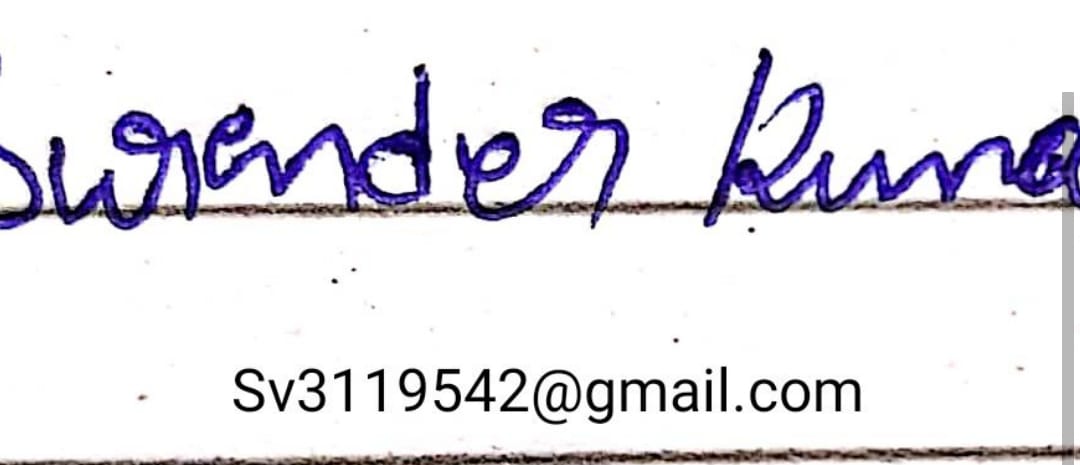 Surender Kuma
Sv3119542@gmail.com